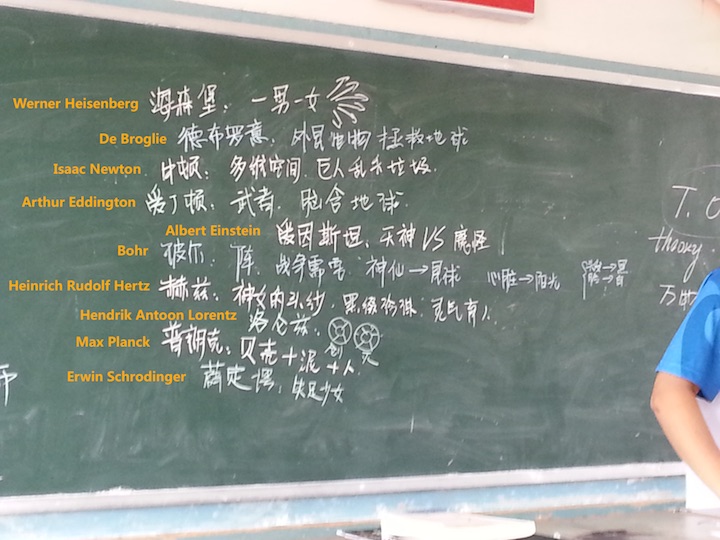 Werner Heisenberg 海森堡: 一男一女
De Broglie 德布罗意: 外星 拯救地球
Isaac Newton 牛顿: 多维空间. 巨人乱扔垃圾.
Arthur Eddington 爱丁顿: 武者. 包含地球.
Albert Einstein 爱因斯坦. 天神 VS 魔怪
Bohr 玻尔: 阵. 战争需要. 神仙→月球 心脏→阳光
Heinrich Rudolf Hertz 赫兹: 神女的头纱.
Hendrik Antoon Lorentz 洛仑兹.
Max Planck 普朗克: 贝壳+泥+人.
Erwin Schrodinger 薛定谔: 失足少女
T. O
theory.